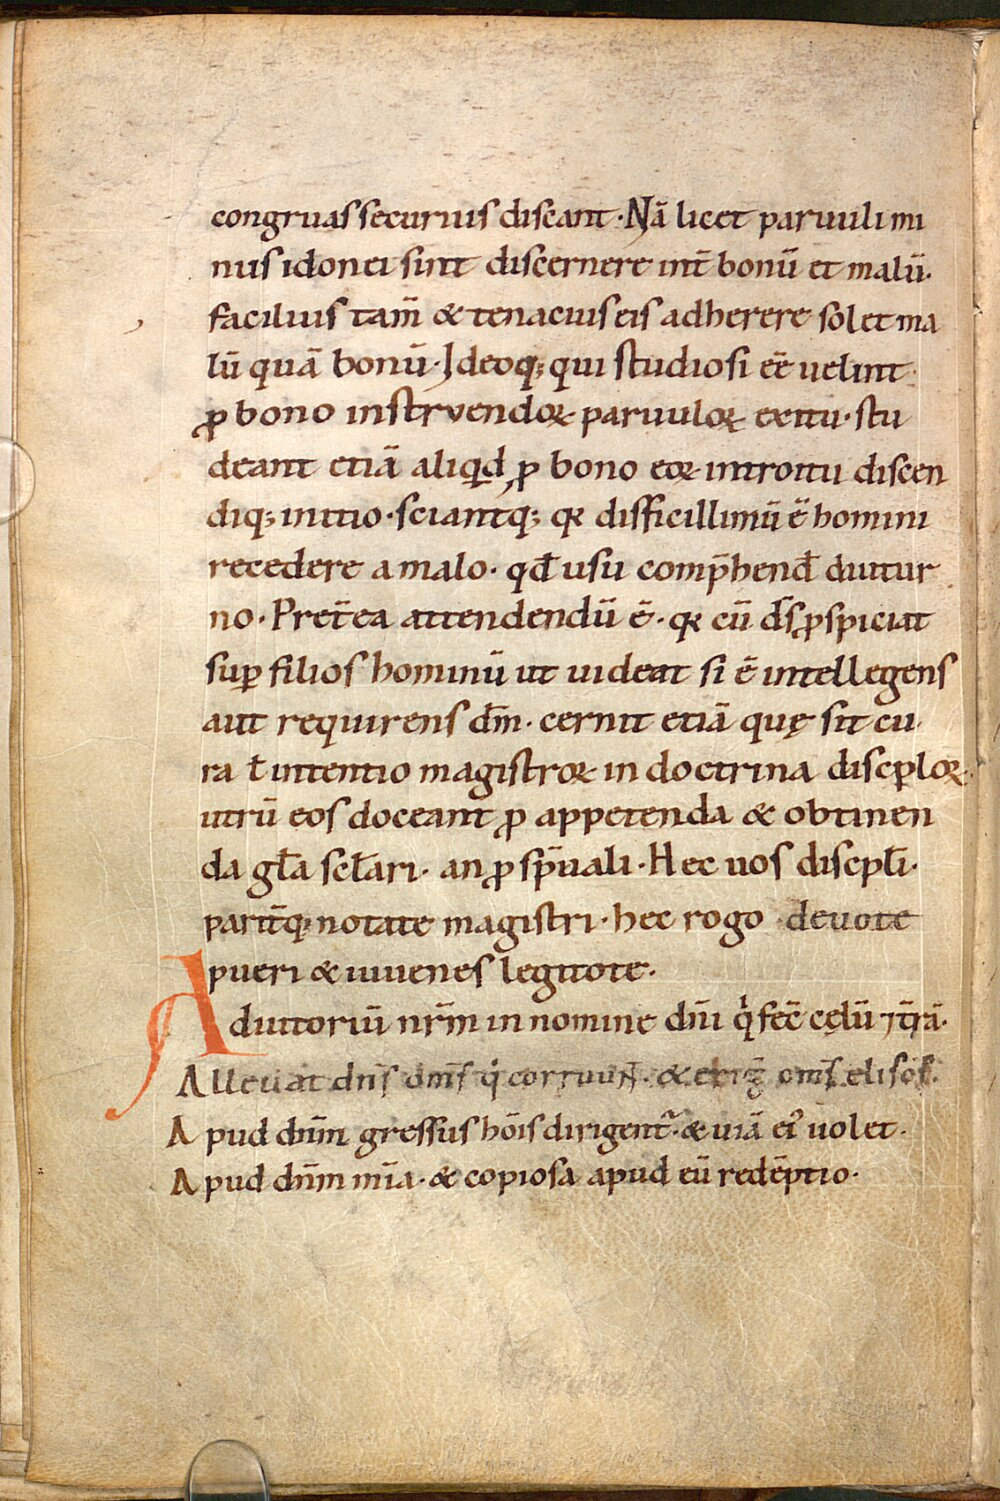 congruas securius discant · Nã licet paruuli mi
nus idonei sint discernere int̃ bonũ et malũ.
facilius tam̃ & tenacius eis adherere solet ma
lũ quã bonũ · Ideoq; qui studiosi eẽ uelint
ꝓ bono instruendoꝝ paruuloꝝ exitu · stu
deant etiã aliqd ꝓ bono eoꝝ introitu discen
diq; initio · sciantq; qꝛ difficillimũ ẽ homini
recedere a malo · qđ usu comp̃hend̃ diutur
no · Pret̃ea attendendũ ẽ · qꝛ cũ d̃s ꝓspiciat
suꝑ filios hominũ ut uideat si ẽ intellegens
aut requirens dm̃ · cernit etiã quę sit cu
ra ł intentio magistroꝝ in doctrina discip̃loꝝ
utrũ eos doceant ꝓ appetenda & obtinen
da gl̃a scl̃ari · an ꝓ sp̃uali · Hec uos discipl̃i ·
parit̃q; notate magistri · hec rogo deuote
pueri & iuuenes legitote ·
Adiutoriũ nr̃m in nomine dñi q̇ fec̃ cęlũ ⁊ t̃rã ·
Alleuat dñs om̃s q̇ corruuñt · & erigit om̃s elisos ·
Apud dñm gressus hõis dirigent᷑ · & uiã ei᷒ uolet ·
Apud dñm mĩa · & copiosa apud eũ redẽptio ·